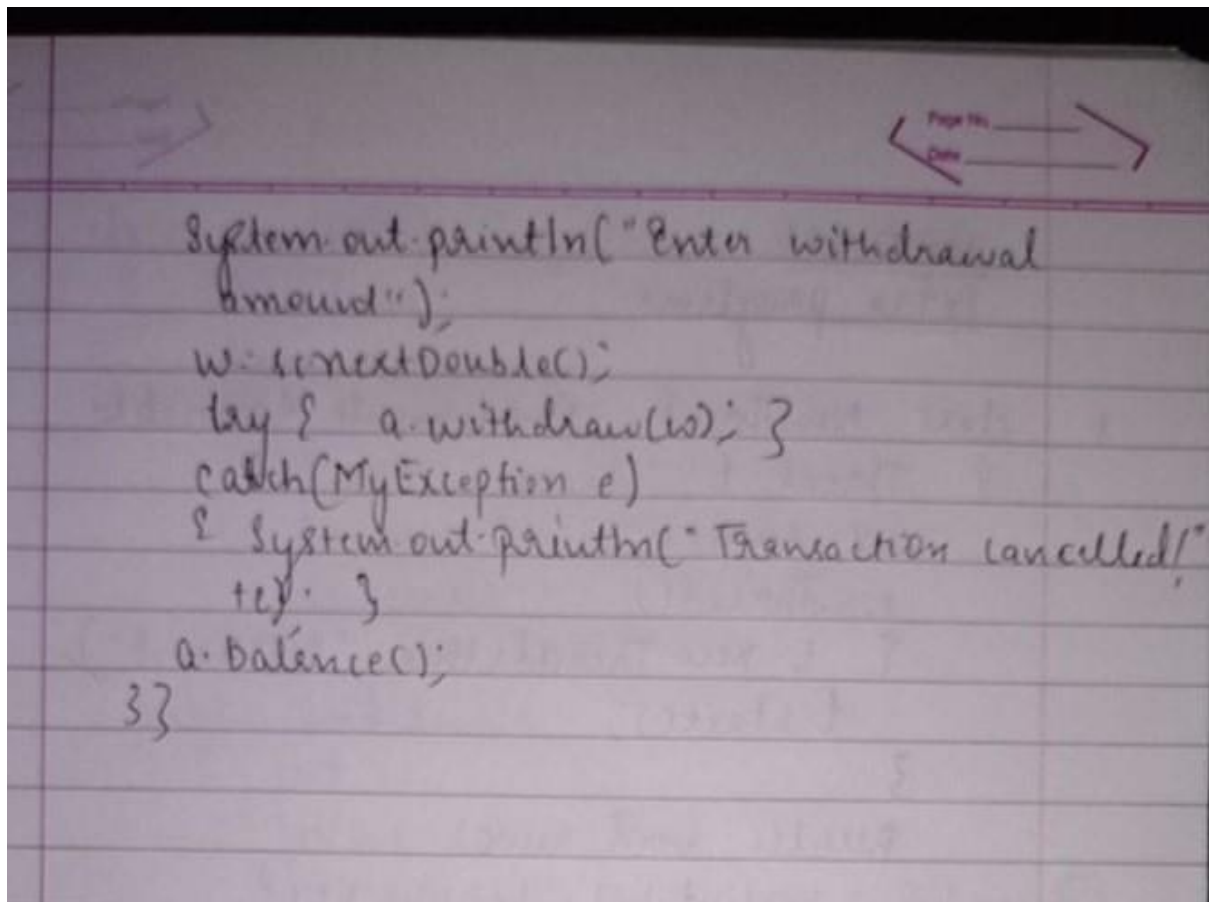 Page No.
Date
System.out.println("Enter withdrawal
amount");
w= sc.nextDouble();
try { a.withdraw(w); }
catch(MyException e)
{ System.out.println("Transaction cancelled!"
+e); }
a.balance();
}}